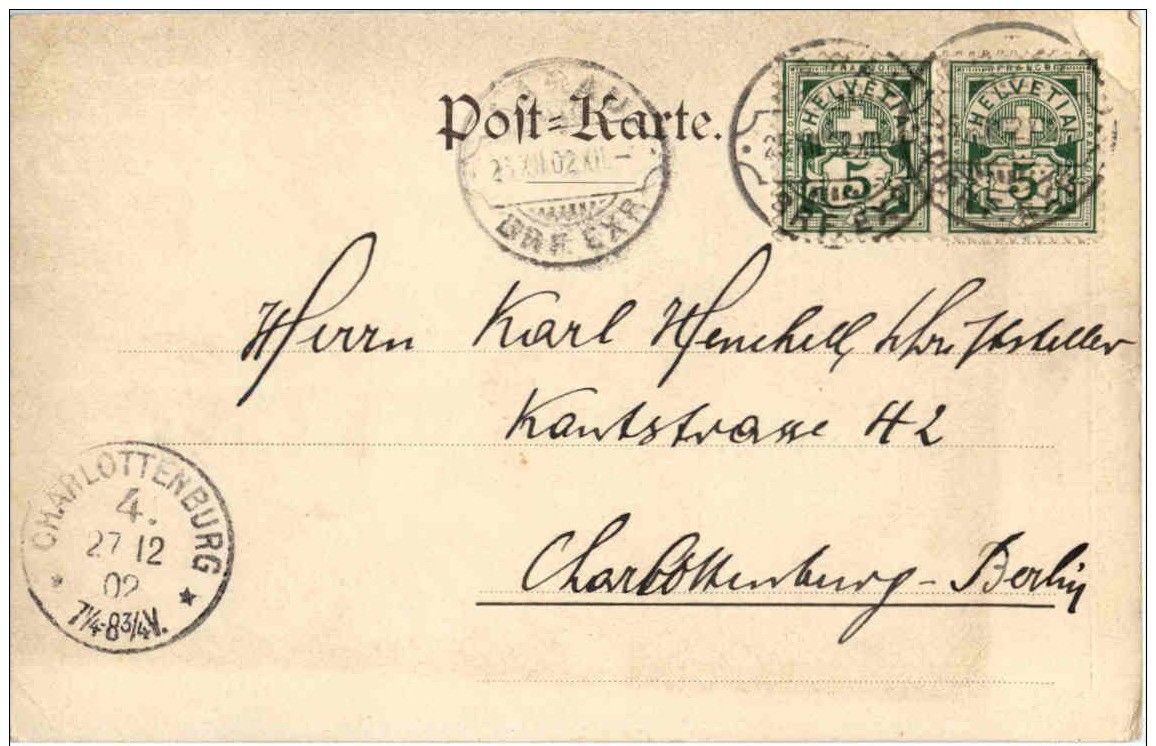 Post=Karte.
HELVETIA
5
HELVETIA
5
XII.02.XII.—
BRF. EXP.
BRF. EX
Herrn Karl Henckell, Schriftsteller
Kantstrasse 42
Charlottenburg - Berlin
CHARLOTTENBURG
4.
27 12
02
7¼-8¾V.